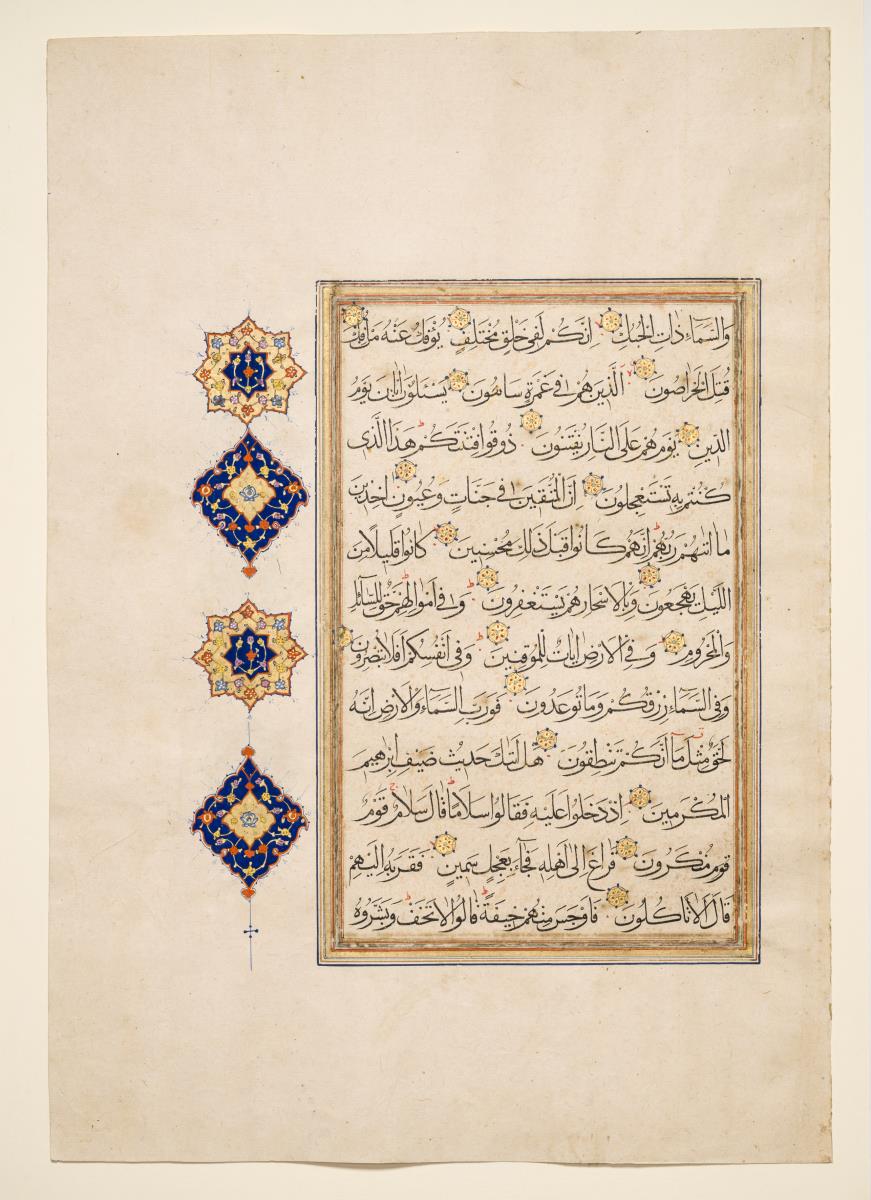 وَالسَّمَاءِ ذَاتِ الْحُبُكِ اِنَّكُمْ لَفِي خَلِقٍ مُخْتَلِفٍ يُؤْفَكُ عَنْهُ مَنْ اُفِكَ
قُتِلَ الْخَرَّاصُونَ اَلَّذِينَ هُمْ فِي غَمْرَةٍ سَاهُونَ يَسْئَلُونَ اَيَّانَ يَوْمُ
الدِّينِ يَوْمَ هُمْ عَلَى النَّارِ يُفْتَنُونَ ذُوقُوا فِتْنَتَكُمْ هٰذَا الَّذِي
كُنْتُمْ بِهِ تَسْتَعْجِلُونَ اِنَّ الْمُتَّقِينَ فِي جَنَّاتٍ وَعُيُونٍ اٰخِذِينَ
مَا اٰتٰهُمْ رَبُّهُمْ اِنَّهُمْ كَانُوا قَبْلَ ذٰلِكَ مُحْسِنِينَ كَانُوا قَلِيلًا مِنَ
اللَّيْلِ يَهْجَعُونَ وَبِالْاَسْحَارِ هُمْ يَسْتَغْفِرُونَ وَفِي اَمْوَالِهِمْ حَقٌّ لِلسَّائِلِ
وَالْمَحْرُومِ وَفِي الْاَرْضِ اٰيَاتٌ لِلْمُوقِنِينَ وَفِي اَنْفُسِكُمْ اَفَلَا تُبْصِرُونَ
وَفِي السَّمَاءِ رِزْقُكُمْ وَمَا تُوعَدُونَ فَوَرَبِّ السَّمَاءِ وَالْاَرْضِ اِنَّهُ
لَحَقٌّ مِثْلَ مَا اَنَّكُمْ تَنْطِقُونَ هَلْ اَتٰيكَ حَدِيثُ ضَيْفِ اِبْرٰهِيمَ
الْمُكْرَمِينَ اِذْ دَخَلُوا عَلَيْهِ فَقَالُوا سَلَامًا قَالَ سَلَامٌ قَوْمٌ
قَوْمٌ مُنْكَرُونَ فَرَاغَ اِلَى اَهْلِهِ فَجَاءَ بِعِجْلٍ سَمِينٍ فَقَرَّبَهُ اِلَيْهِمْ
قَالَ اَلَا تَاْكُلُونَ فَاَوْجَسَ مِنْهُمْ خِيفَةً قَالُوا لَا تَخَفْ وَبَشَّرُوهُ